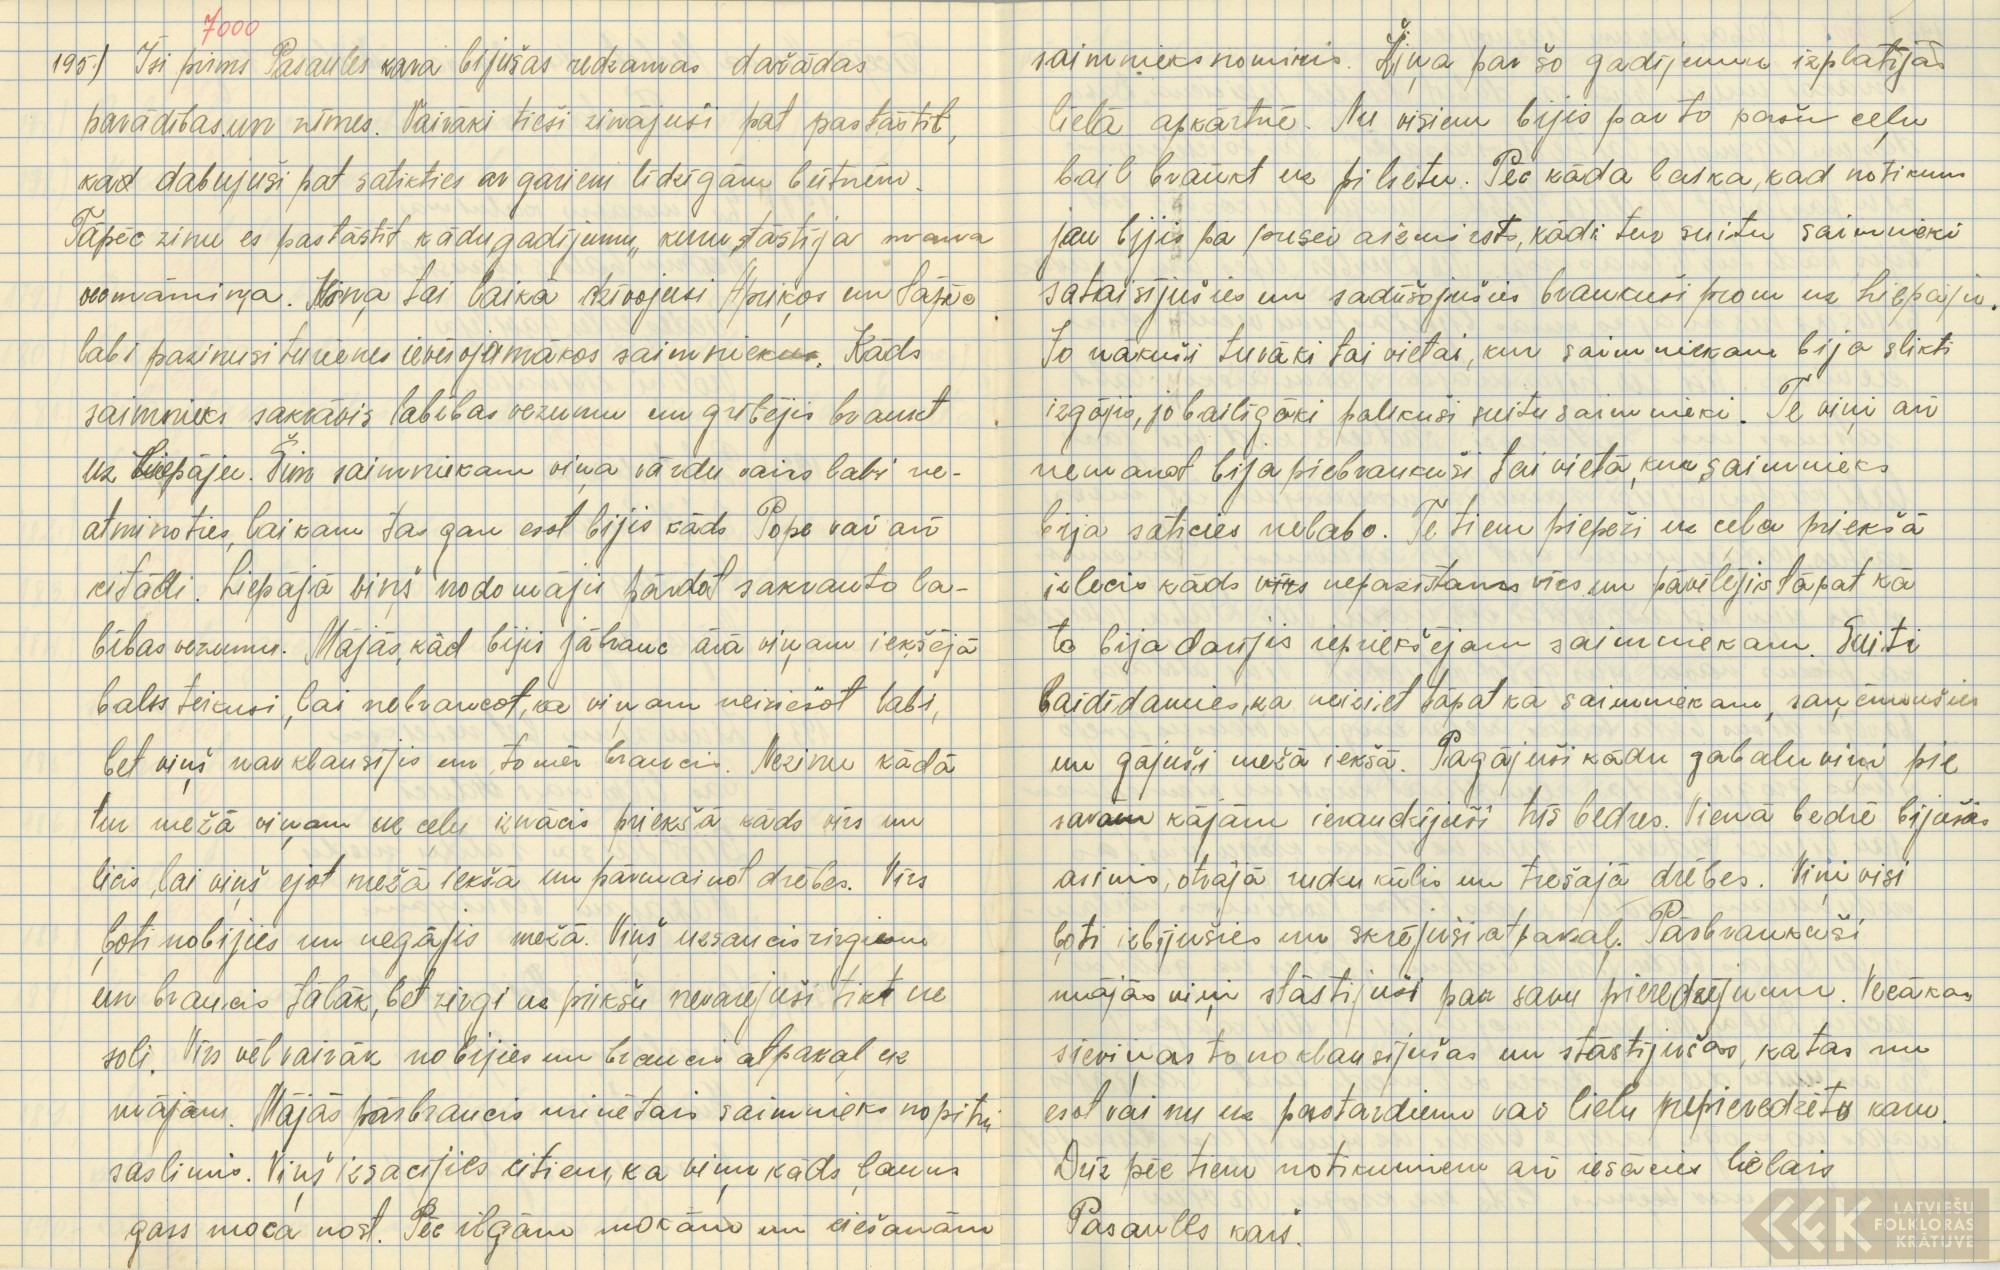 7000
195) Īsi pirms Pasaules kara bijušas redzamas dažādas
parādības un zīmes. Vairāki tieši zinājuši pat pastāstīt,
kad dabujuši pat satikties ar gariem līdzīgām būtnēm.
Tāpēc zinu es pastāstīt kādu gadījumu, kuru stāstīja mana
vecmāmiņa. Viņa tai laikā dzīvojusi Apriķos un tāpēc
labi pazinusi turienes ievērojamākos saimniekus. Kāds
saimnieks sakrāvis labības vezumu un gribējis braukt
uz Liepāju. Šim saimniekam viņa vārdu vairs labi ne-
atminoties, laikam tas gan esot bijis kāds Pope vai arī
citādi. Liepājā viņš nodomājis pārdot sakrauto la-
bības vezumu. Mājās, kad bijis jābrauc ārā viņam iekšējā
balss teikusi, lai nebraucot, ka viņam neiziešot labi,
bet viņš nav klausījis un tomēr braucis. Nezinu kādā
tur mežā viņam uz ceļu iznācis priekšā kāds vīrs un
licis, lai viņš ejot mežā iekšā un pārmainot drēbes. Vīrs
ļoti nobijies un negājis mežā. Viņš uzsaucis zirgiem
un braucis tālāk, bet zirgi uz priekšu nevarējuši tikt ne
soli. Vīrs vēl vairāk nobijies un braucis atpakaļ uz
mājām. Mājās pārbraucis minētais saimnieks nopietni
saslimis. Viņš izsacījies citiem, ka viņu kāds ļauns
gars moca nost. Pēc ilgām mokām un ciešanām
saimnieks nomiris. Ziņa par šo gadījumu izplatījās
lielā apkārtnē. Nu visiem bijis par to pašu ceļu
bail braukt uz pilsētu. Pēc kāda laika, kad notikums
jau bijis pa pusei aizmirsts, kādi tur suitu saimnieki
sataisījušies un sadūšojušies braukuši prom uz Liepāju.
Jo nākuši tuvāki tai vietai, kur saimniekam bija slikti
izgājis, jo bailīgāki palikuši suitu saimnieki. Te viņi arī
nemanot bija piebraukuši tai vietā, kur saimnieks
bija saticies nelabo. Te tiem piepeži uz ceļa priekšā
izlecis kāds nepazīstams vīrs un pavēlējis tāpat kā
to bija darījis iepriekšējam saimniekam. Suiti
baidīdamies, ka neiziet tāpat kā saimniekam, saņēmušies
un gājuši mežā iekšā. Pagājuši kādu gabalu viņi pie
savām kājām ieraudzījuši trīs bedres. Vienā bedrē bijušas
asinis, otrājā rudzu kūlis un trešajā drēbes. Viņi visi
ļoti izbijušies un skrējuši atpakaļ. Pārbraukuši
mājās viņi stāstījuši par savu pieredzējumu. Vecākas
sieviņas to noklausījušas un stāstījušas, ka tas nu
esot vai nu uz pastardienu vai lielu nepieredzētu karu.
Drīz pēc tiem notikumiem arī iesācies lielais
Pasaules kaŗš.
LATVIEŠU
FOLKLORAS
KRĀTUVE